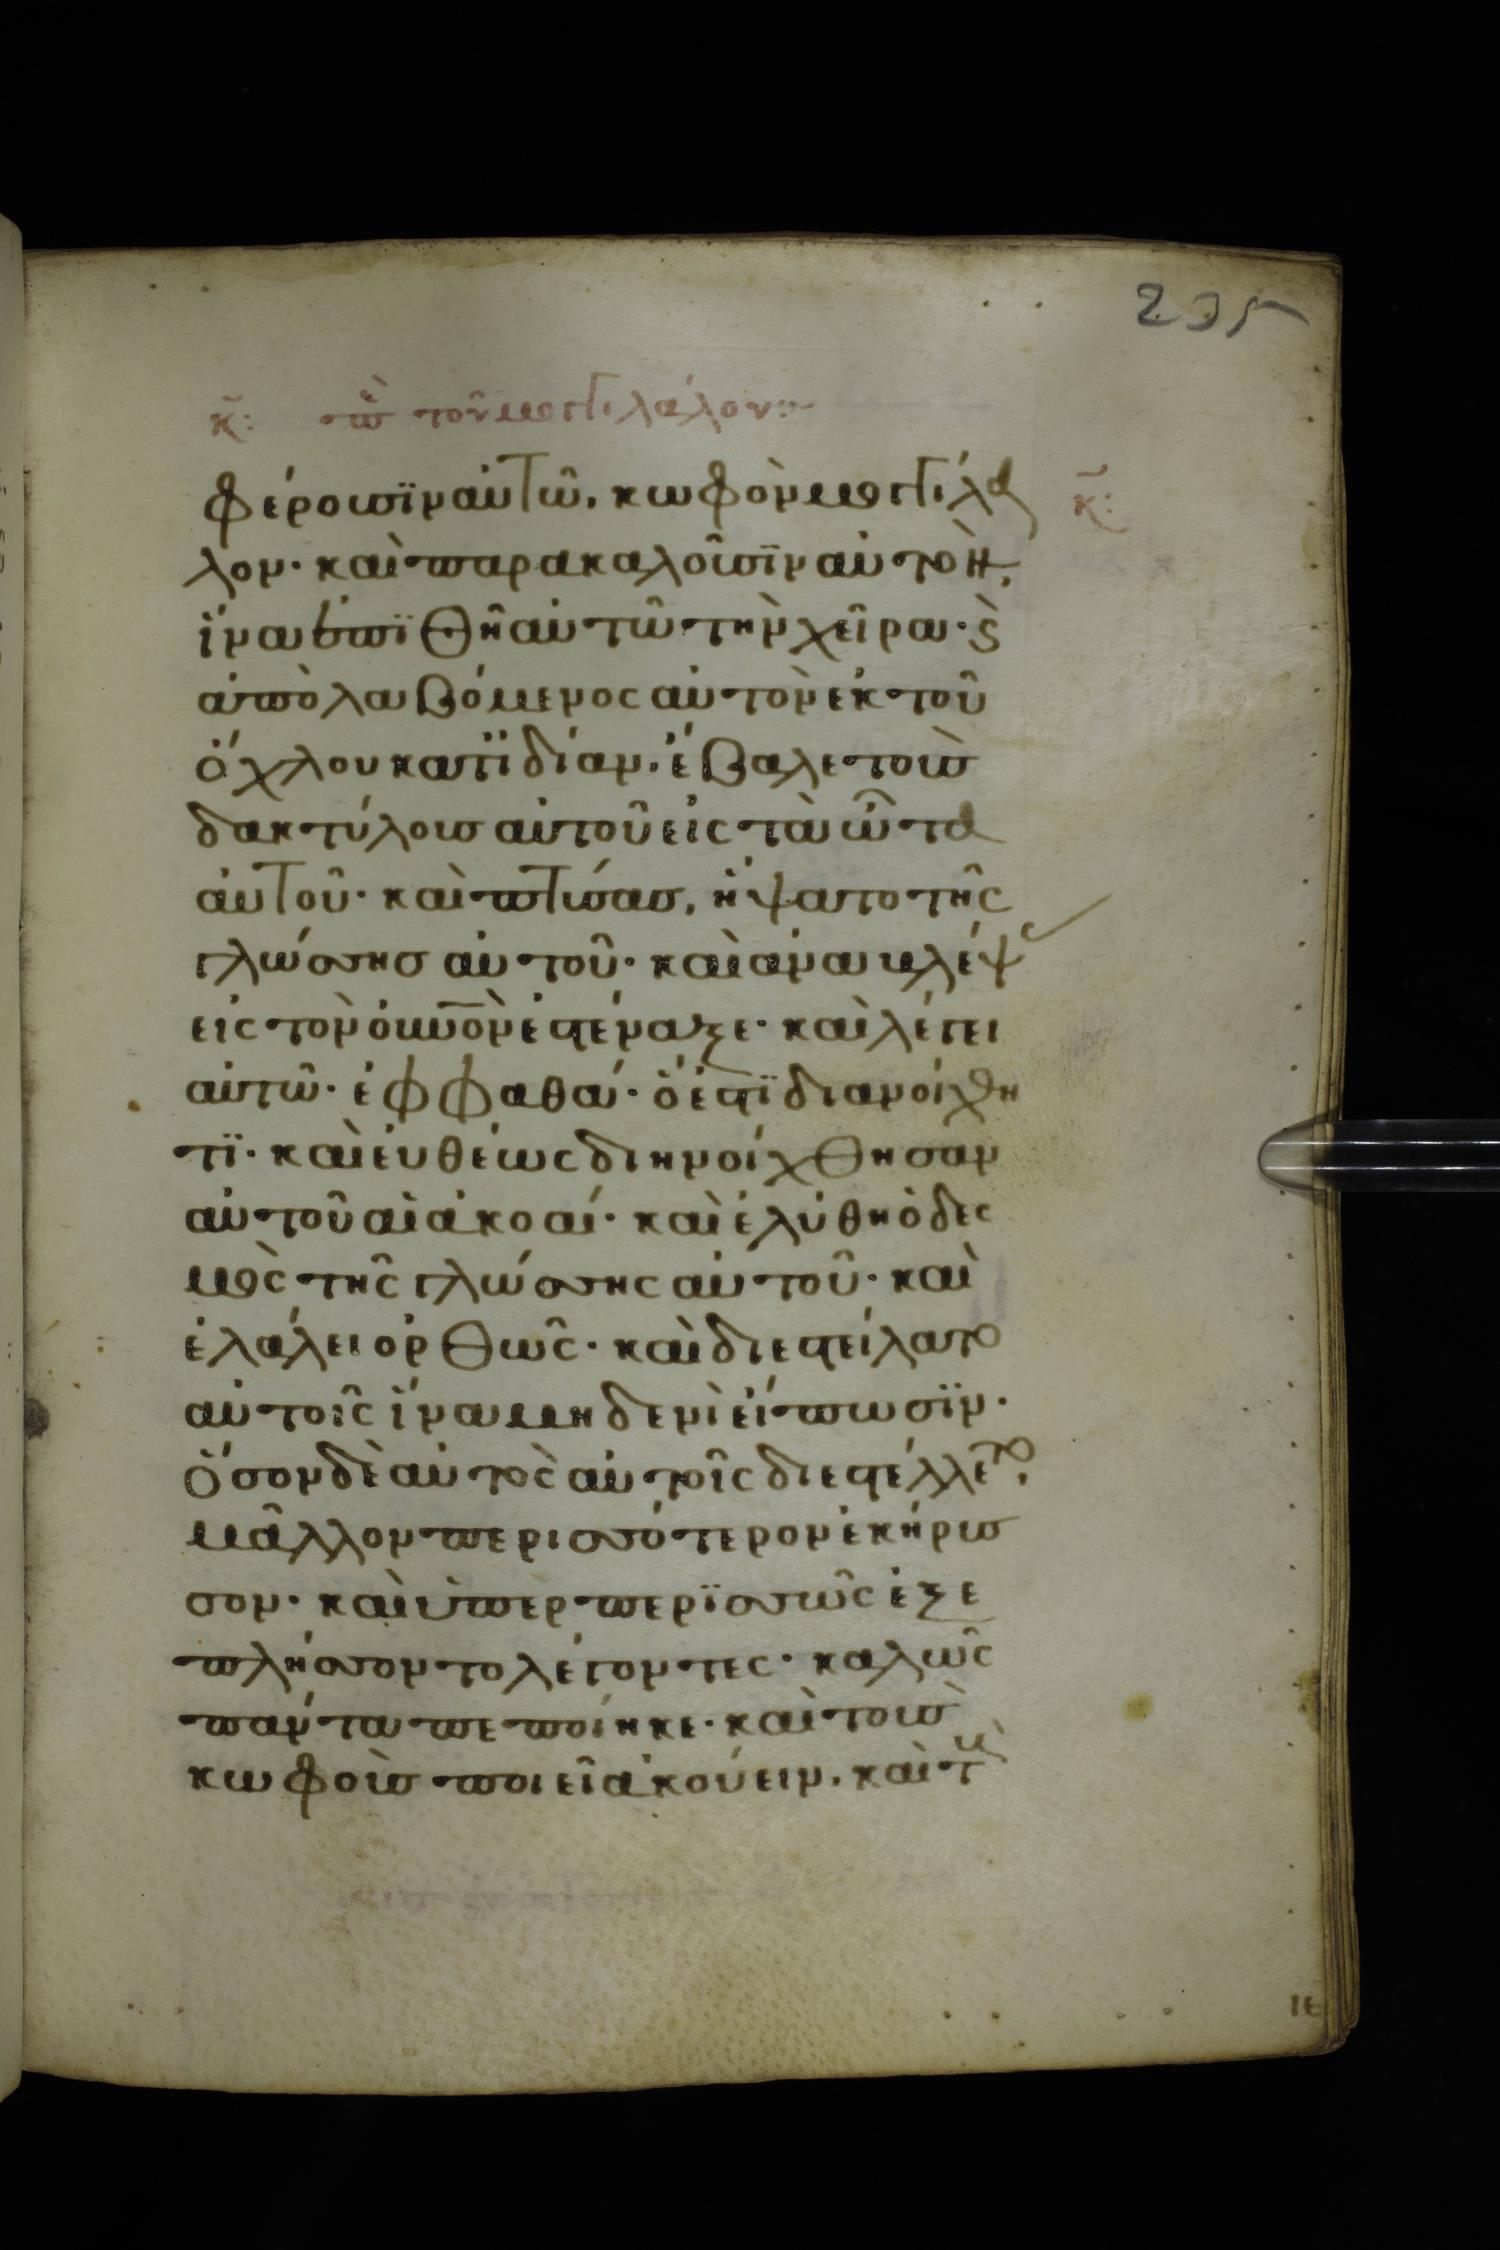 235
κ̄: περὶ τοῦ μογγιλάλου:
φέρουσϊν αὐτῶ, κωφὸν μογγιλά κ̄:
λον· καὶ παρακαλοῦσϊν αὐτὸν,
ἵνα ἐπϊθῆ αὐτῶ τὴν χεῖρα· ϗ
ἀπὸλαβόμενος αὐτὸν ἐκ τοῦ
ὄχλου κατϊδίαν. ἔβαλε τοὺς
δακτύλους αὐτοῦ εἰς τὰ ὦτα
αὐτοῦ· καὶ πτύσας, ἥψατο τῆς
γλώσσης αὐτοῦ· καὶ ἀναβλέψας
εἰς τὸν οὐνὸν ἐστέναξε· καὶ λέγει
αὐτῶ· ἐφφαθά· ὅ ἐστϊ διανοίχθη
τϊ· καὶ εὐθέως διηνοίχθησαν
αὐτοῦ αἱ ἀκοαί· καὶ ἐλύθη ὁ δεσ
μὸς τῆς γλώσσης αὐτοῦ· καὶ
ἐλάλει ὀρθῶς· καὶ διεστείλατο
αὐτοῖς ἵνα μηδενὶ εἴπωσϊν·
Ὅσον δὲ αὐτὸς αὐτοῖς διεστέλλετο,
μᾶλλον περισσότερον ἐκήρυσ
σον· καὶ ὑπερπερϊσσῶς ἐξε
πλήσσοντο λέγοντες· καλῶς
πάντα πεποίηκε· καὶ τοὺς
κωφοὺς ποιεῖ ἀκούειν, καὶ τοὺς